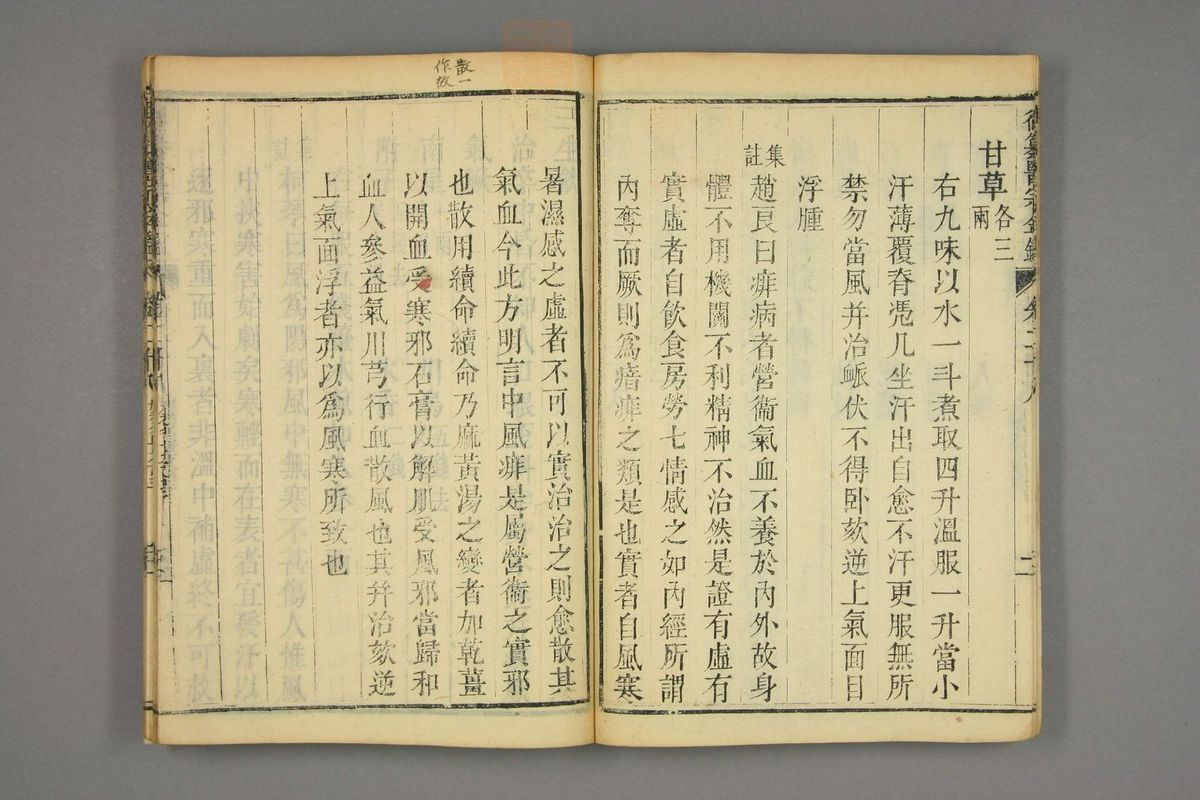 御纂醫宗金鑑 卷二十八
甘草各三兩
右九味以水一斗煮取四升溫服一升當小
汗薄覆脊凭几坐汗出自愈不汗更服無所
禁勿當風并治郷伏不得卧欬逆上氣面目
浮腫
集註趙良曰痱病者營衞氣血不養於內外故身
體不用機關不利精神不治然是證有虛有
實虛者自飲食房勞七情感之如內經所謂
內奪而厥則爲瘖痱之類是也實者自風寒
暑濕感之虛者不可以實治治之則愈散其
氣血今此方明言中風痱是屬營衞之實邪
也散用續命續命乃麻黃湯之變者加乾薑
以開血受寒邪石膏以解肌受風邪當歸和
血人參益氣川芎行血散風也其并治欬逆
上氣面浮者亦以爲風寒所致也
散一
作故